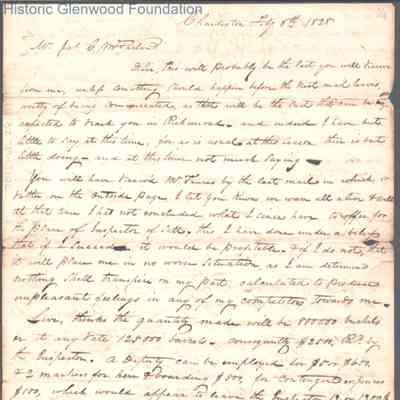 Historic Glenwood Foundation
Charleston Feby 8th 1828
Mr. Jas. C. McFarland
This will probably be the last you will receive
from me, unless something should happen before the next mail leaves
worthy of being communicated, as that will be the last
expected to reach you in Richmond. and indeed I have but
little to say at this time, for as is usual at this season there is but
little doing and at this time not much saying
You will have received Mr by the last mail in which or
rather on the outside page I let you know we were all alive & well
at that time I had not concluded what I could have to offer for
the place of Inspector of Salt. this I have done under a belief
that if I succeed it would be profitable & if I do not, that
it will place me in no worse situation, as I am determined
nothing shall transpire on my part, calculated to produce
unpleasant feelings in any of my competitors towards me.
thinks the quantity made will be 800000 bushels
or at any rate 125000 barrels. consequently $2500, by
the Inspector. A Deputy can be employed for $500,
& 2 markers for hire & boarding $500, for contingent expenses
$100, which would appear to leave the Inspector